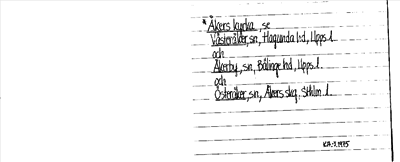 * Åkers kyrka, se
Västeråker, sn, Hagunda hd, Upps l.
och
Åkerby, sn, Bälinge hd, Upps l.
och
Österåker, sn, Åkers skg, Sthlm l.